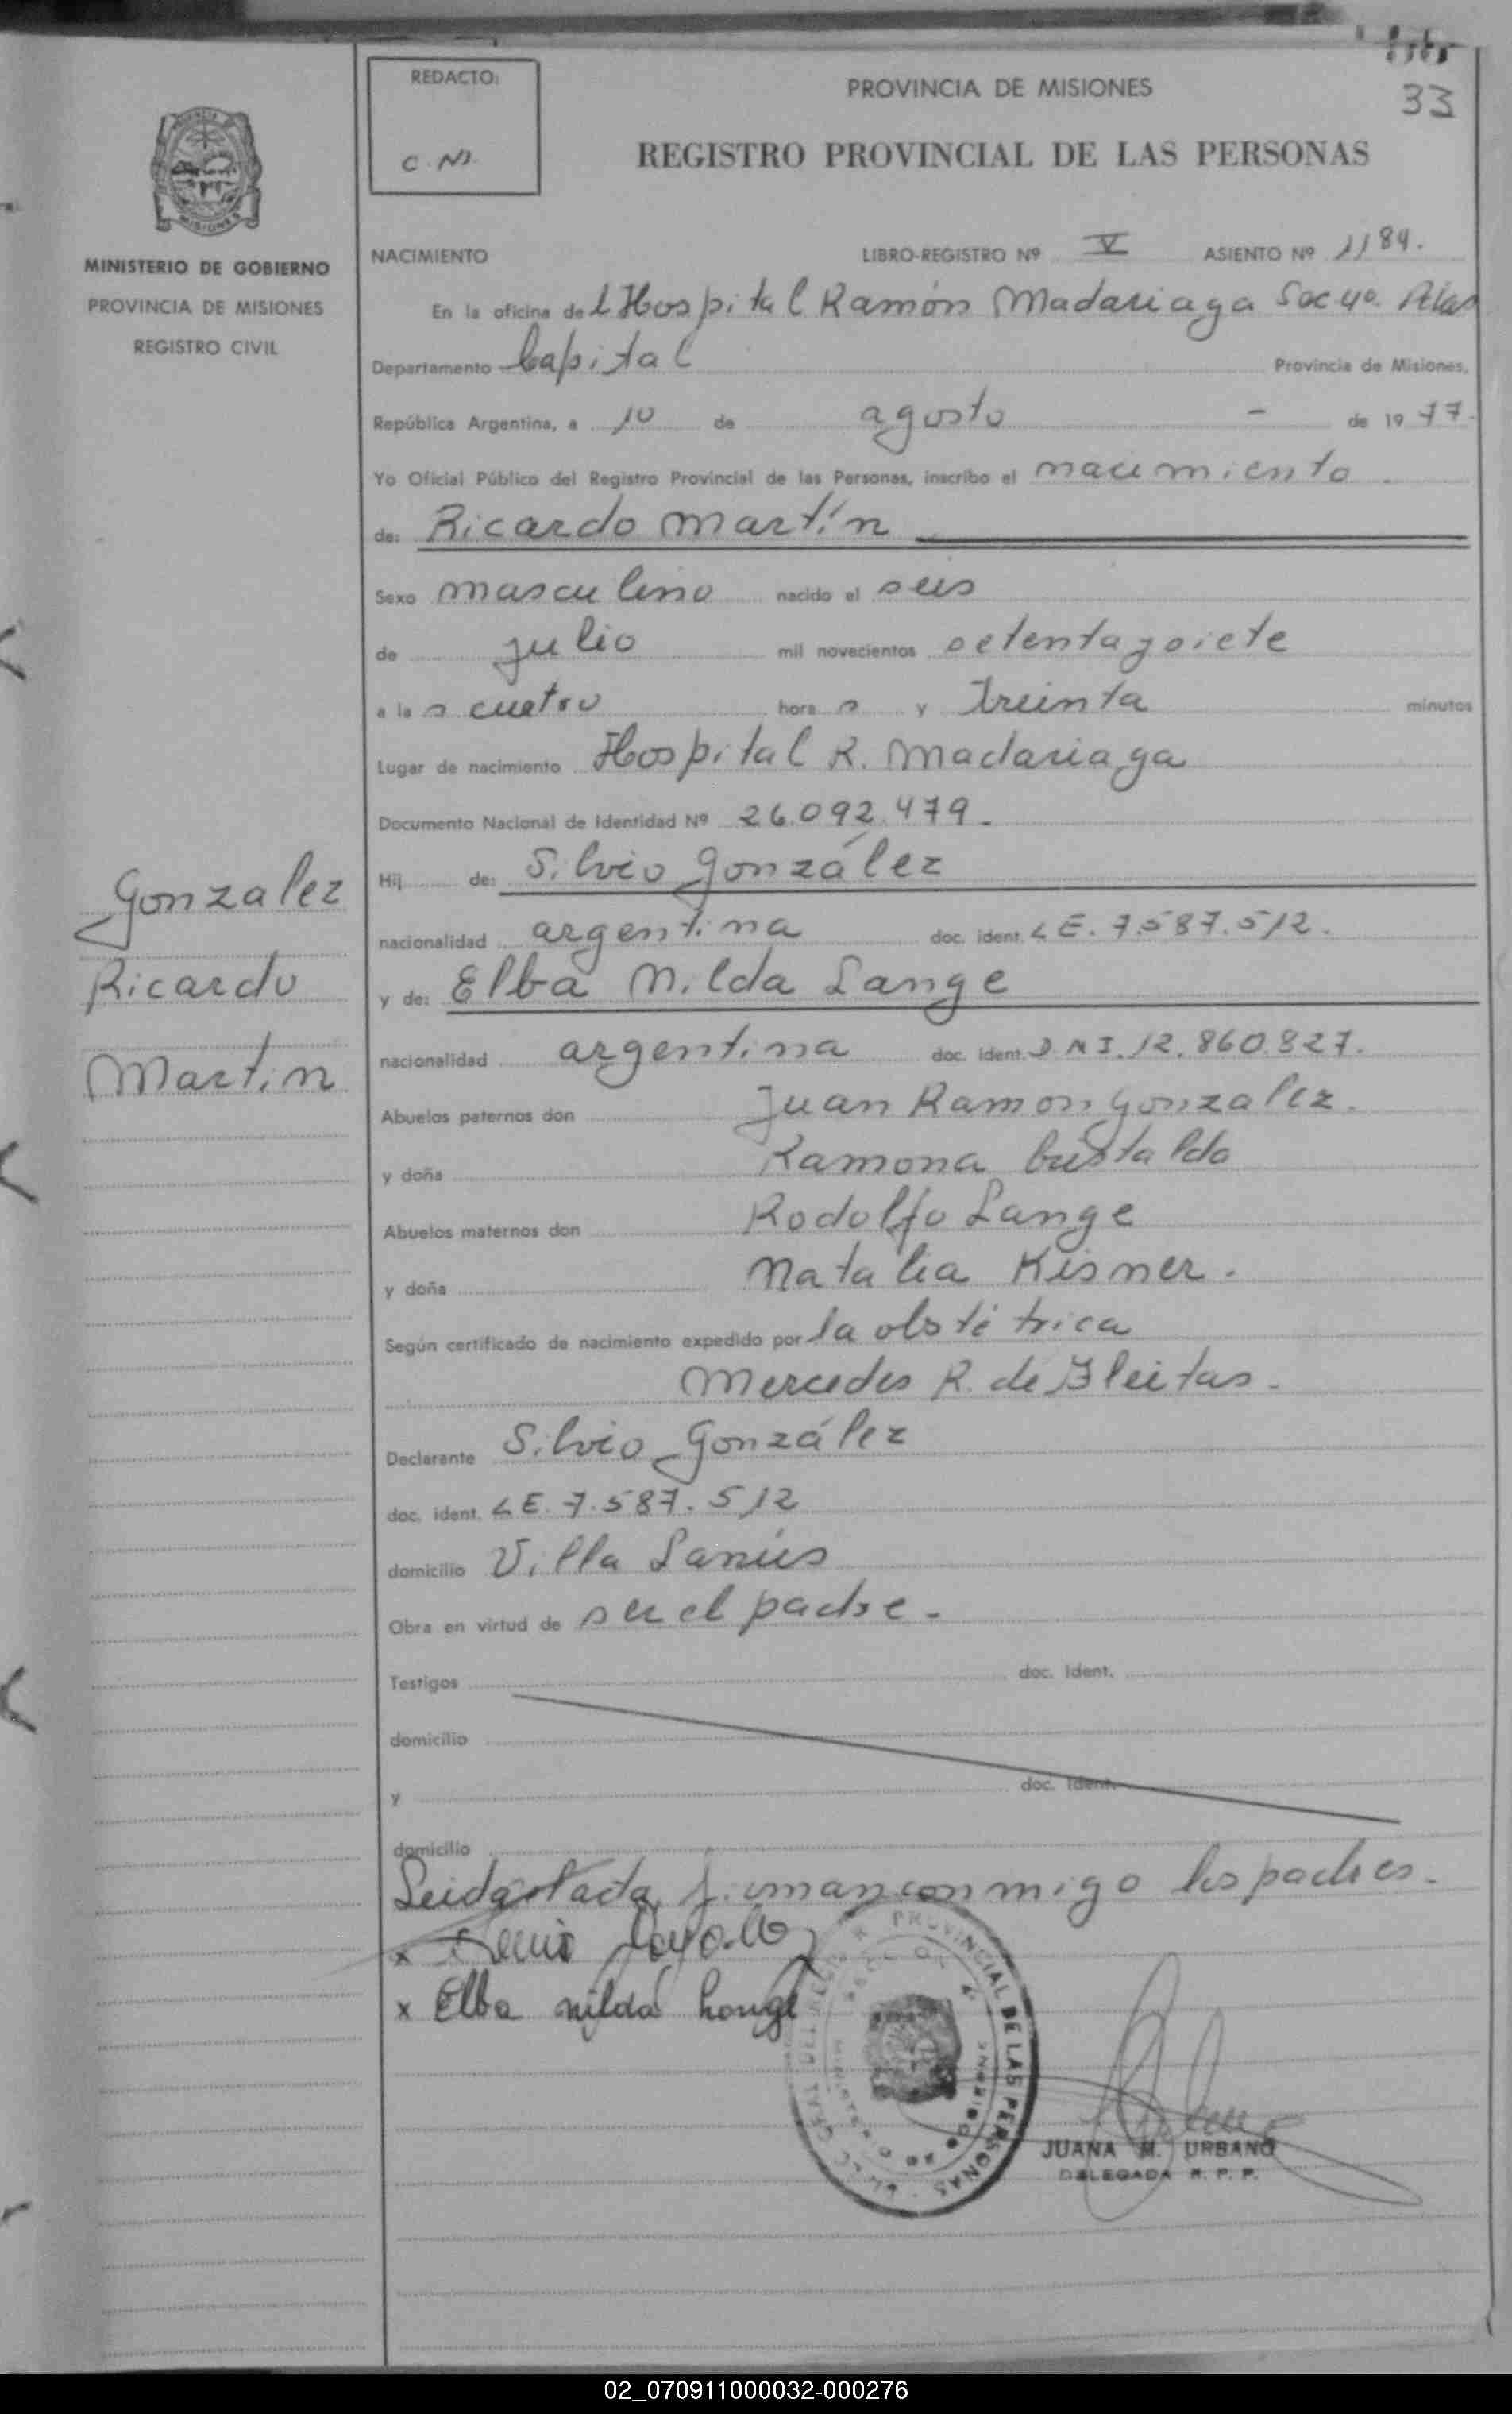 33
REDACTO:
C. N.
PROVINCIA DE MISIONES
REGISTRO PROVINCIAL DE LAS PERSONAS
MISIONES
MINISTERIO DE GOBIERNO
PROVINCIA DE MISIONES
REGISTRO CIVIL
NACIMIENTO LIBRO-REGISTRO Nº V ASIENTO Nº 1184.
En la oficina del Hospital Ramón Madariaga
Departamento Capital Provincia de Misiones,
República Argentina, a 10 de agosto - de 1977.
Yo Oficial Público del Registro Provincial de las Personas, inscribo el nacimiento.
de: Ricardo Martín
Sexo masculino nacido el seis
de julio mil novecientos setenta y siete
a las cuatro horas y treinta minutos
Lugar de nacimiento Hospital R. Madariaga
Documento Nacional de Identidad Nº 26.092.479.
Hij de: Silvio González
nacionalidad argentina doc. ident. LE. 7.587.512.
y de: Elba Nilda Lange
nacionalidad argentina doc. ident. D.N.I. 12.860.827.
Abuelos paternos don Juan Ramon Gonzalez.
y doña Ramona
Abuelos maternos don Rodolfo Lange
y doña Natalia Kisner.
Según certificado de nacimiento expedido por la obstétrica
Mercedes R. de Gleitas.
Declarante Silvio González
doc. ident. LE. 7.587.512
domicilio Villa Lanús
Obra en virtud de ser el padre.
Testigos doc. Ident.
domicilio
y doc. Ident.
domicilio
Gonzalez
Ricardo
Martin
Leida el acta, firman conmigo los padres.
x
x Elba nilda Lange
PROVINCIAL DE LAS PERSONAS
JUANA M. URBANO
DELEGADA R. P. P.
02_070911000032-000276